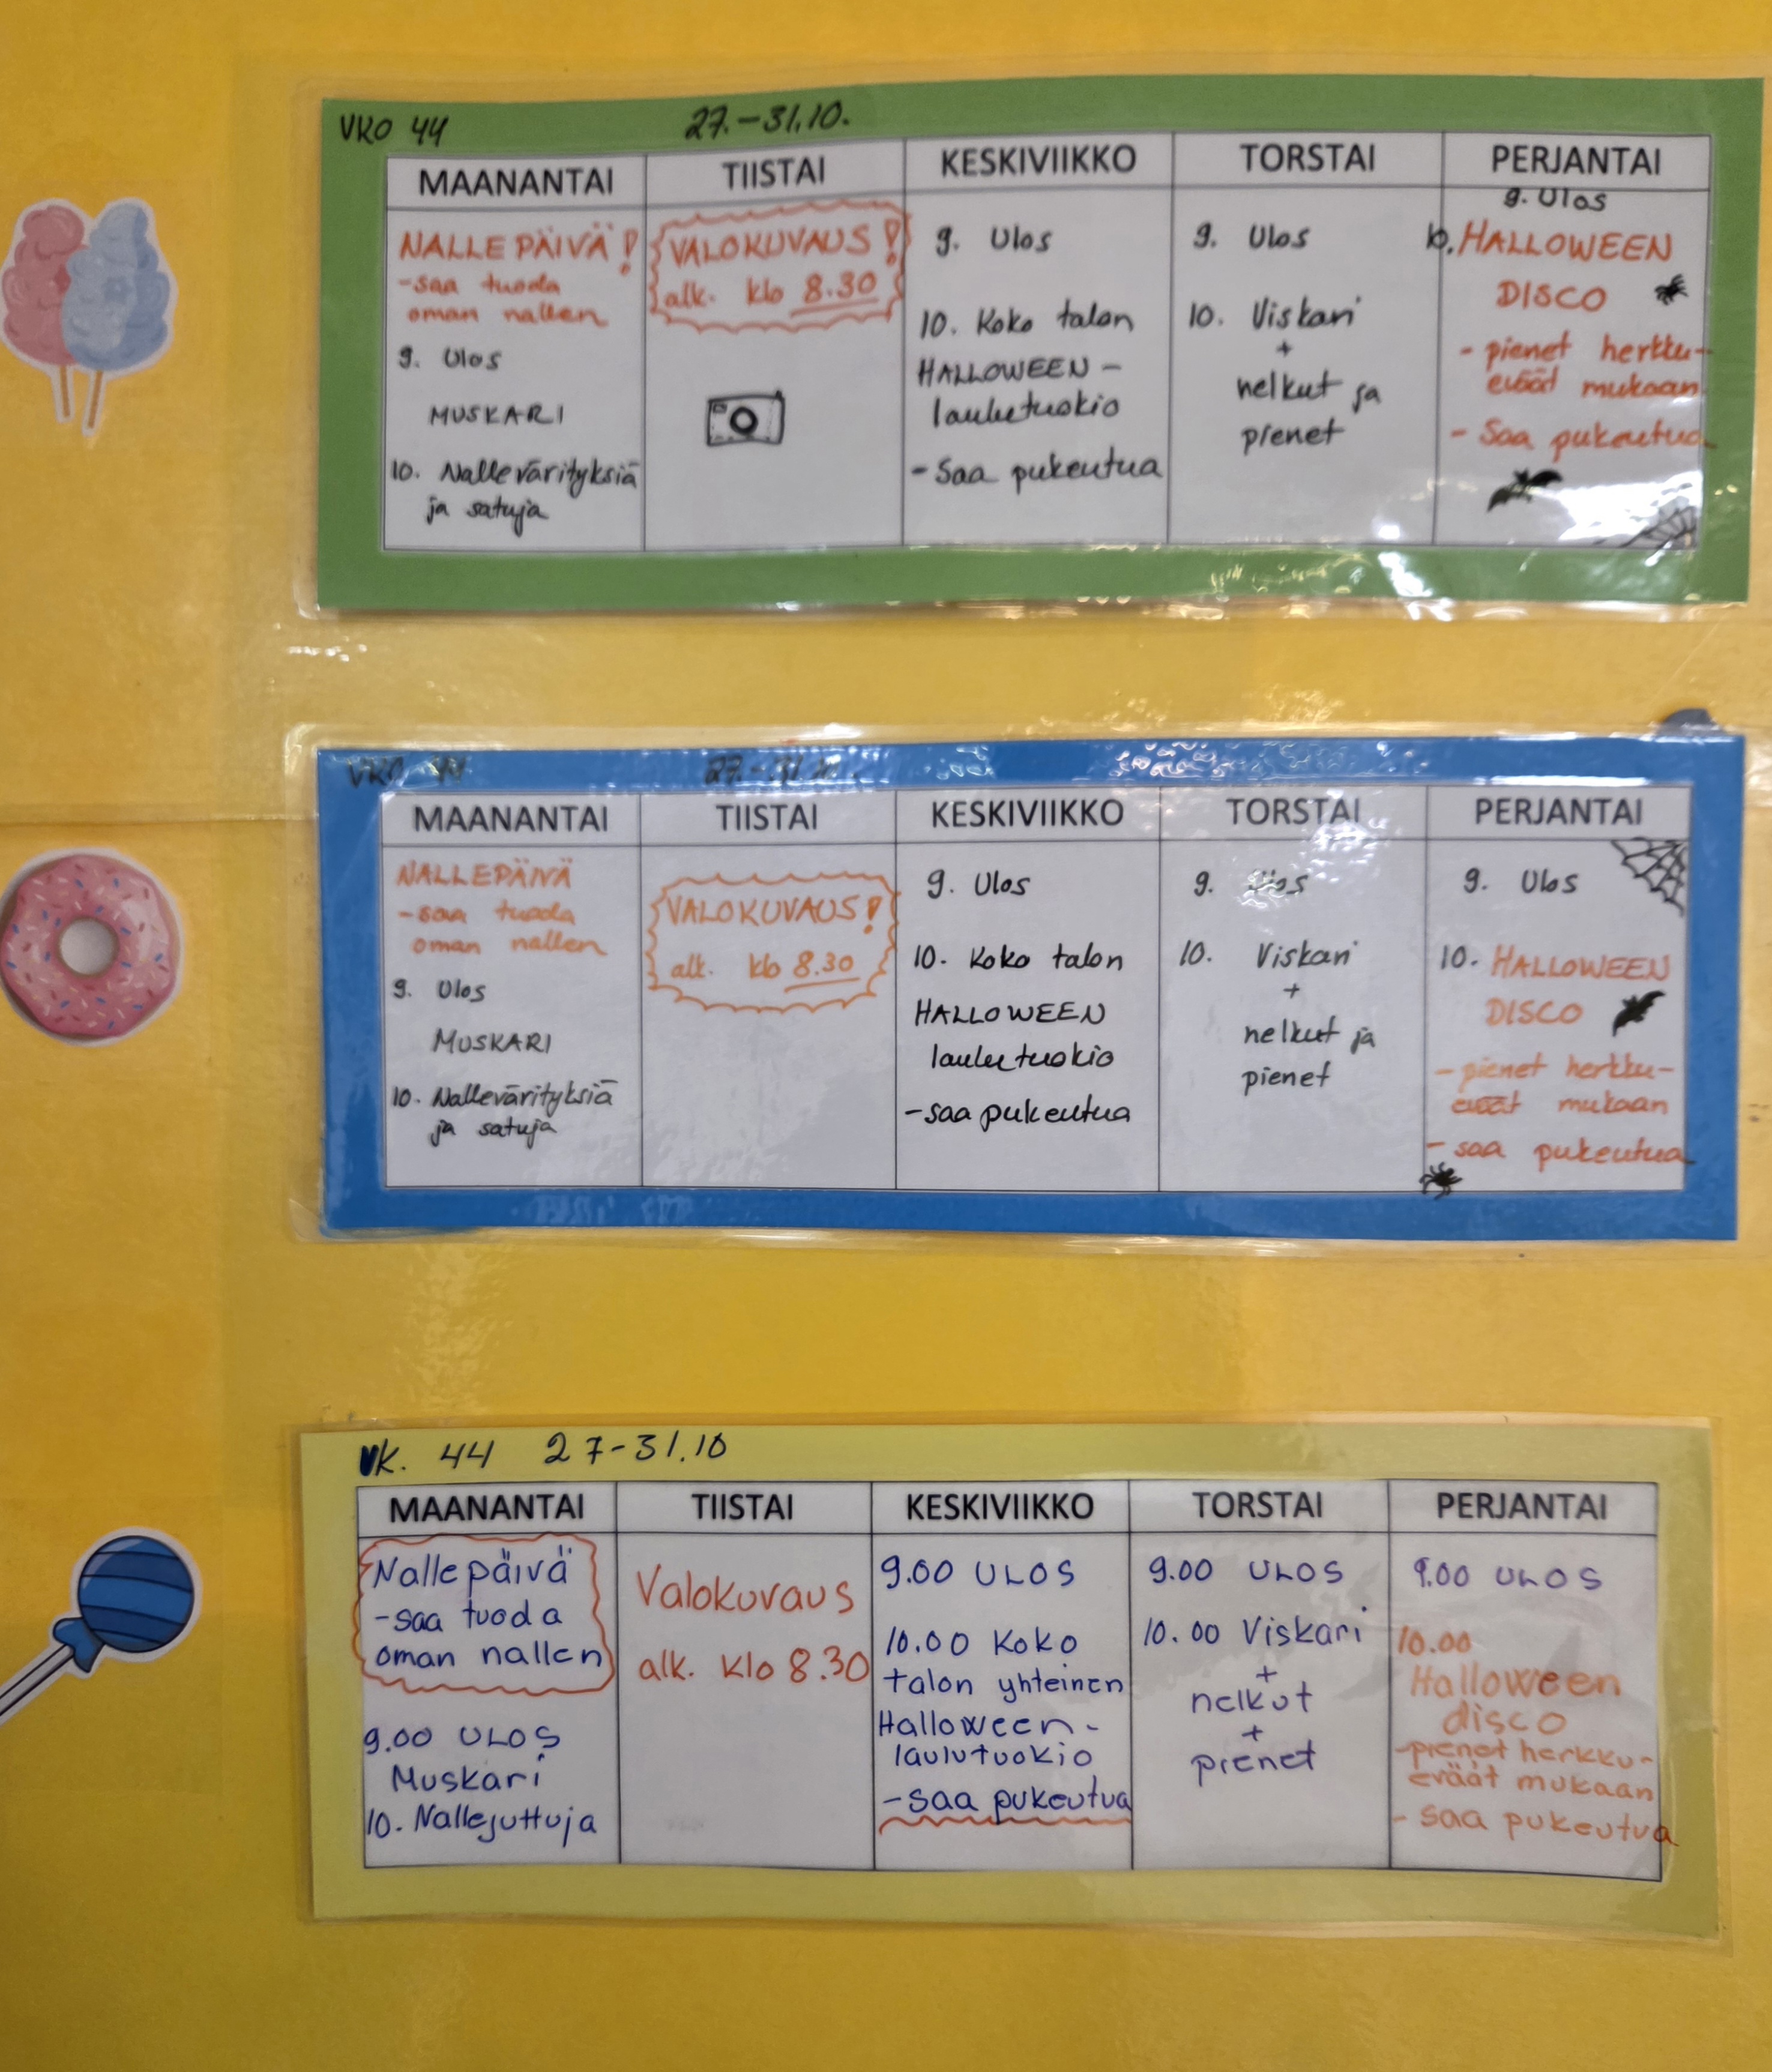 VKO 44 27.-31.10.
MAANANTAI TIISTAI KESKIVIIKKO TORSTAI PERJANTAI
NALLEPÄIVÄ!
-saa tuoda
oman nallen
9. Ulos
MUSKARI
10. Nallevärityksiä
ja satuja
VALOKUVAUS!
alk. klo 8.30
9. Ulos
10. Koko talon
HALLOWEEN-
laulutuokio
-Saa pukeutua
9. Ulos
10. Viskari
+
nelkut ja
pienet
9. Ulos
10. HALLOWEEN
DISCO
- pienet herkku-
evääd mukaan
- Saa pukeutua
VKO 44 27.-31.
MAANANTAI TIISTAI KESKIVIIKKO TORSTAI PERJANTAI
NALLEPÄIVÄ
-saa tuoda
oman nallen
9. Ulos
MUSKARI
10. Nallevärityksiä
ja satuja
VALOKUVAUS!
alk. klo 8.30
9. Ulos
10. Koko talon
HALLOWEEN
laulutuokio
-saa pukeutua
9. Ulos
10. Viskari
+
nelkut ja
pienet
9. Ulos
10. HALLOWEEN
DISCO
- pienet herkku-
eväät mukaan
- saa pukeutua
VK. 44 27-31.10
MAANANTAI TIISTAI KESKIVIIKKO TORSTAI PERJANTAI
Nallepäivä
-saa tuoda
oman nallen
9.00 ULOS
Muskari
10. Nallejuttuja
Valokuvaus
alk. klo 8.30
9.00 ULOS
10.00 Koko
talon yhteinen
Halloween-
laulutuokio
-saa pukeutua
9.00 ULOS
10.00 Viskari
+
nelkut
+
pienet
9.00 ULOS
10.00
Halloween
disco
-pienet herkku-
eväät mukaan
- saa pukeutua